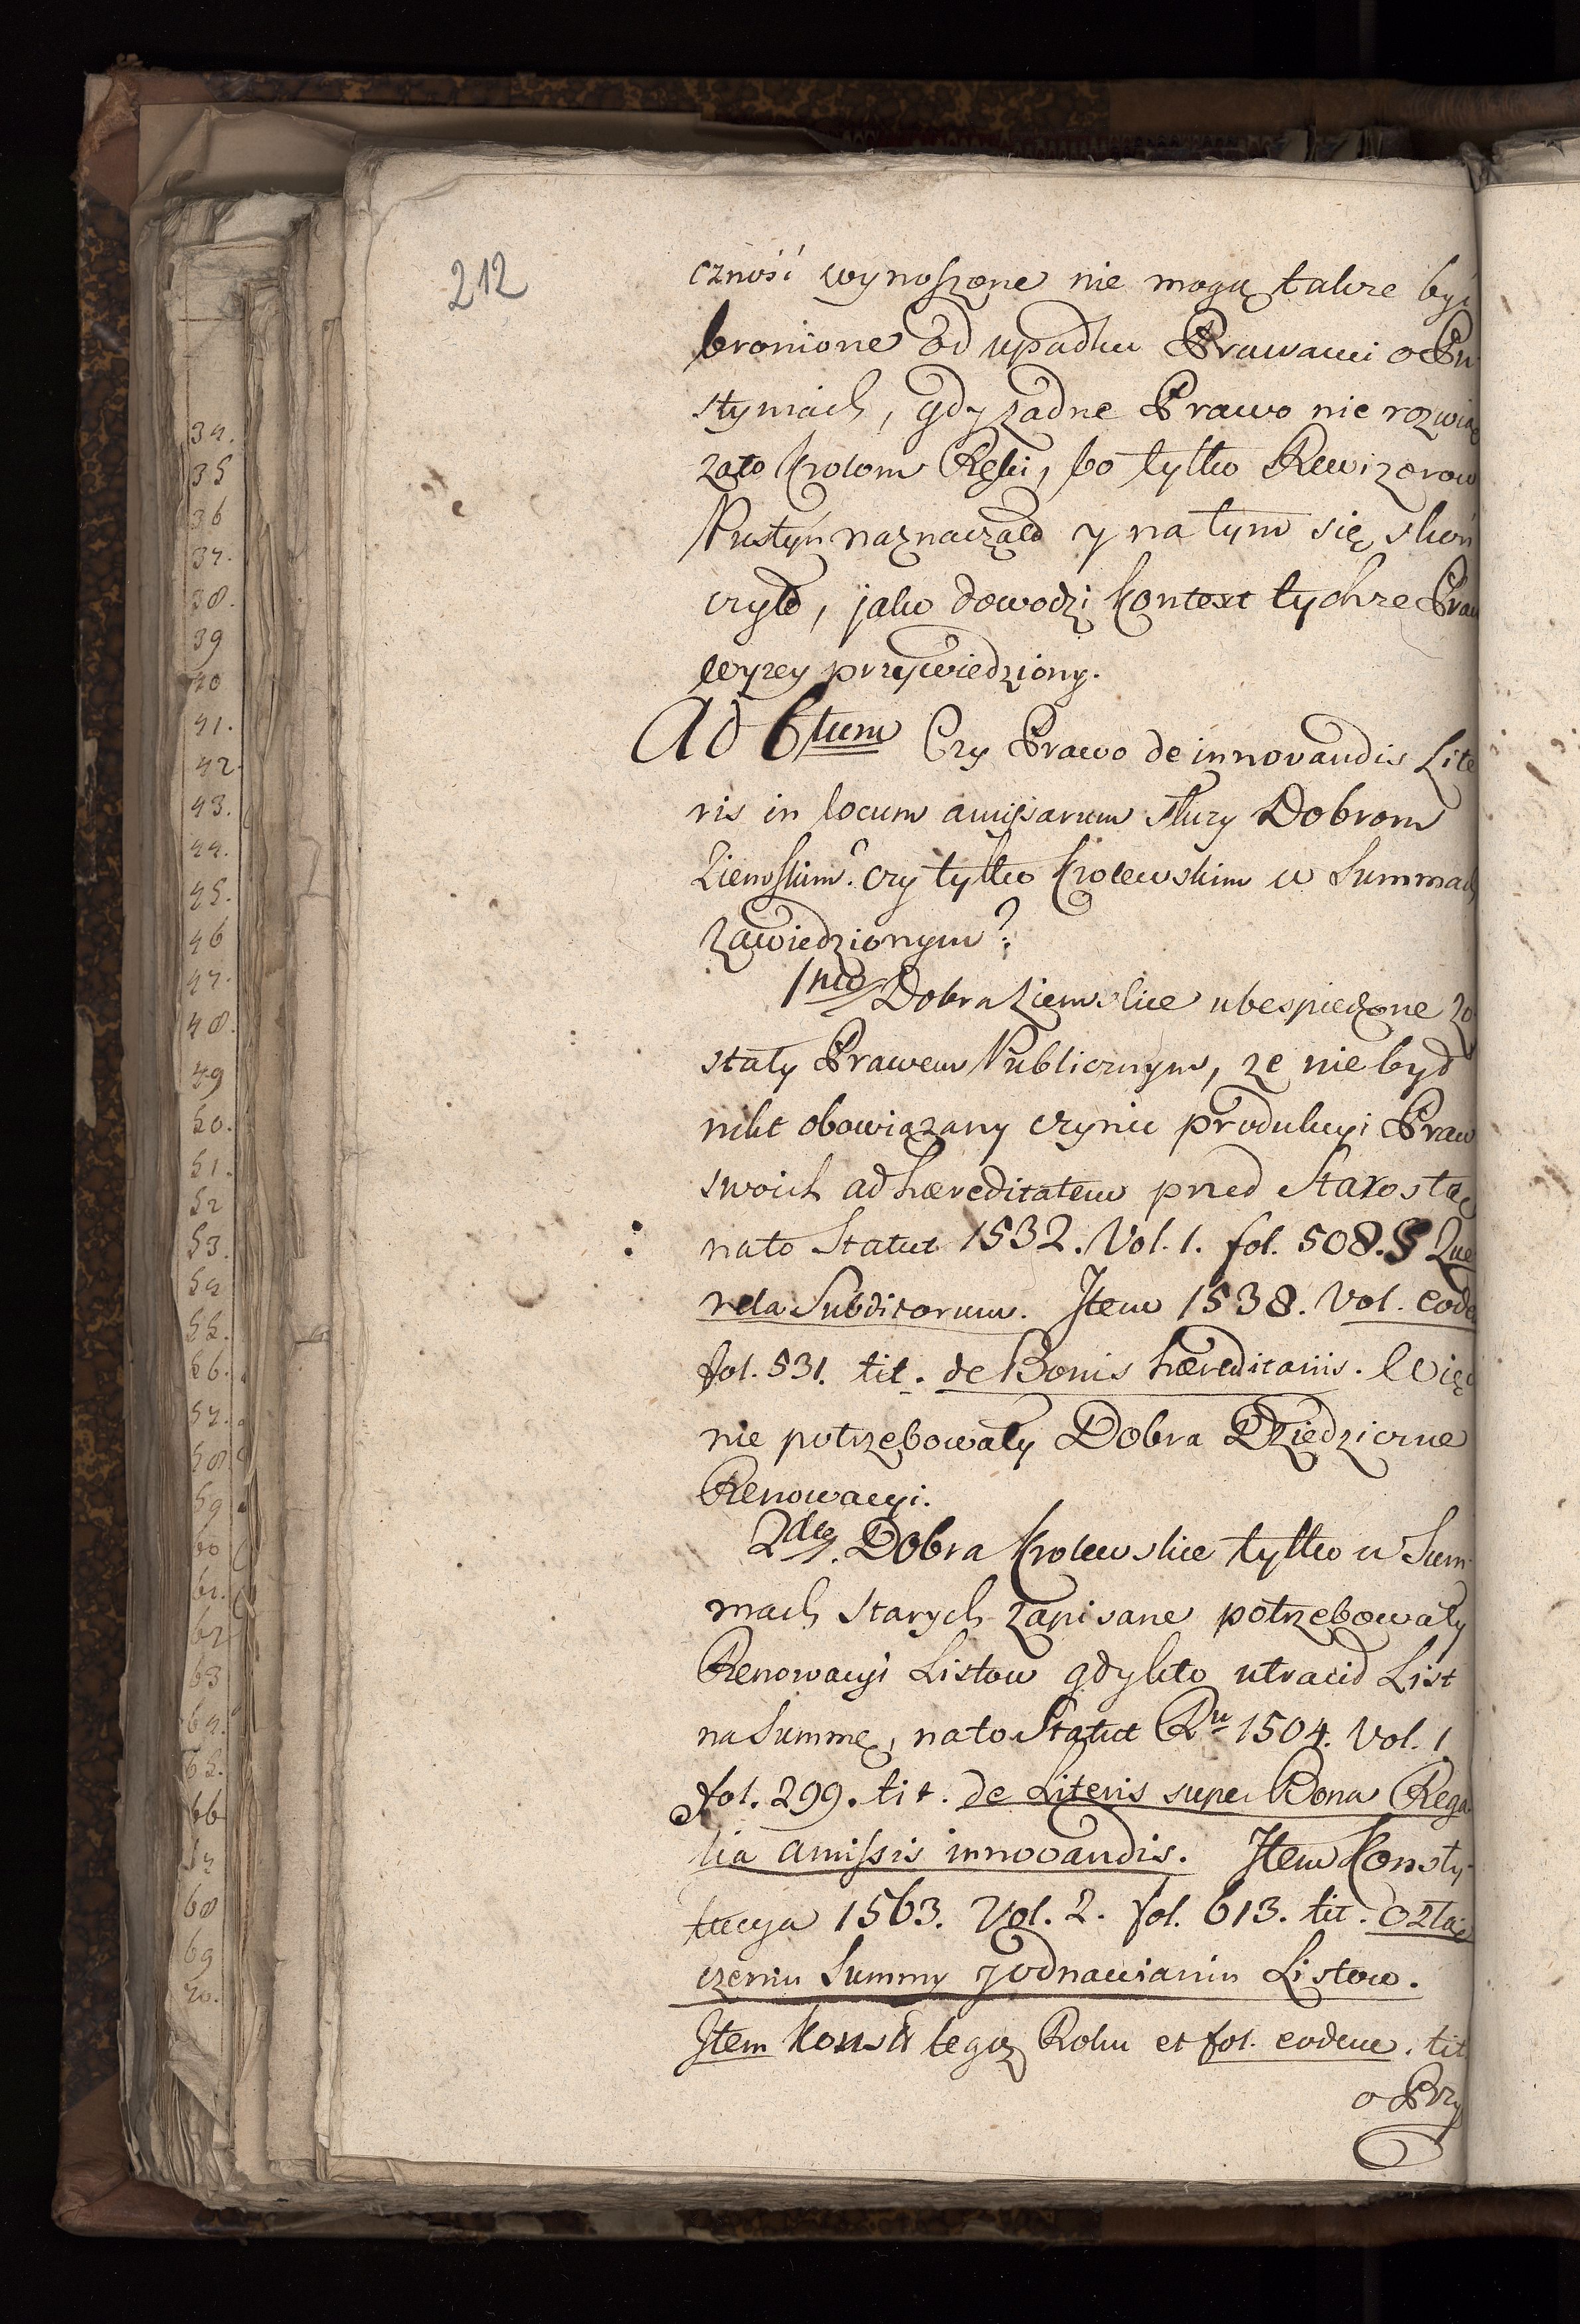 212
czność wynoszone nie mogą takze być
bronione od upadku Prawami o Pu
stymiach, gdy zadne Prawo nie rozwią
zało Krolom Ręki, bo tylko Rewizorow
Pustyń naznaczało y na tym się skoń
czyło, jako dowodzi Kontext tychze Praw
wyzey przywiedziony.
Ad 6tum Czy Prawo de innovandis Lite
ris in locum amissarum służy Dobrom
Ziemskim? czy tylko Krolewskim w Summach
zawiedzionym?
1mo Dobra Ziemskie ubespieczone zo
stały Prawem Publicznym, ze nie był
nikt obowiązany czynić produkcyi Praw
swoich ad hæreditatem przed Starostą
na to Statut 1532. Vol. 1. fol. 508. § Que
rela Subditorum. Item 1538. Vol. eodem
fol. 531. tit. de Bonis hæreditariis. Więc
nie potrzebowały Dobra Dziedziczne
Renowacyi.
2do. Dobra Krolewskie tylko w Sum
mach starych zapisane potrzebowały
Renowacyi Listow gdy kto utracił List
na Summę, na to Statut Ru 1504. Vol. 1
fol. 299. tit. de Literis super Bona Rega
lia amissis innovandis. Item Konsty-
tucya 1563. Vol. 2. fol. 613. tit. o złą
czeniu Summy y odnawianiu Listow.
Item Konst tegoz Roku et fol. eodem. tit
o Przy
34.
35
36
37.
38.
39
40
41.
42.
43.
44.
45.
46
47.
48.
49
50.
51.
52
53.
54
55.
56.
57.
58
59
60
61.
62
63
64.
65.
66
67
68
69
70.